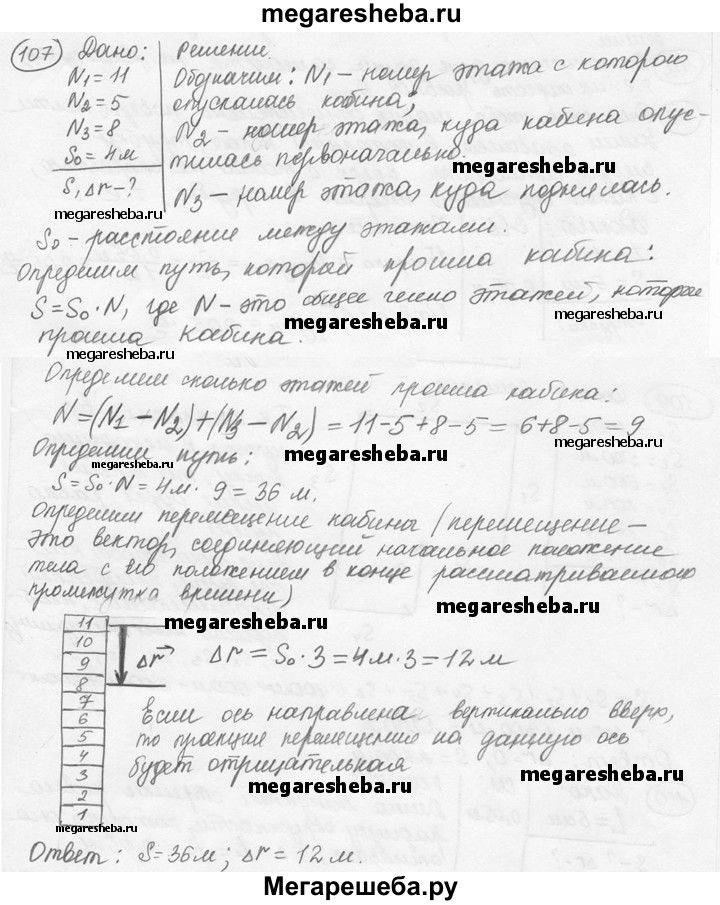 megaresheba.ru
107 Дано: Решение
N₁ = 11 Обозначим: N₁ – номер этажа с которого
N₂ = 5 опускалась кабина;
N₃ = 8 N₂ – номер этажа, куда кабина опус-
S₀ = 4м тилась первоначально.
megaresheba.ru
S, Δr – ? N₃ – номер этажа, куда поднялась.
megaresheba.ru
megaresheba.ru
S₀ – расстояние между этажами.
Определим путь, который прошла кабина:
S = S₀ · N, где N – это общее число этажей, которое
megaresheba.ru
прошла кабина.
megaresheba.ru
Определим сколько этажей прошла кабина:
N = (N₁ – N₂) + (N₃ – N₂) = 11 – 5 + 8 – 5 = 6 + 8 – 5 = 9
megaresheba.ru
Определим путь:
megaresheba.ru
megaresheba.ru
S = S₀ · N = 4м · 9 = 36 м.
Определим перемещение кабины (перемещение –
это вектор, соединяющий начальное положение
тела с его положением в конце рассматриваемого
промежутка времени)
megaresheba.ru
megaresheba.ru
11
10
9
8
7
6
5
4
3
2
1
Δr⃗ Δr = S₀ · 3 = 4м · 3 = 12 м
Если ось направлена вертикально вверх,
то проекция перемещения на данную ось
будет отрицательная
megaresheba.ru
megaresheba.ru
Ответ: S = 36м; Δr = 12 м.
Мегарешеба.ру